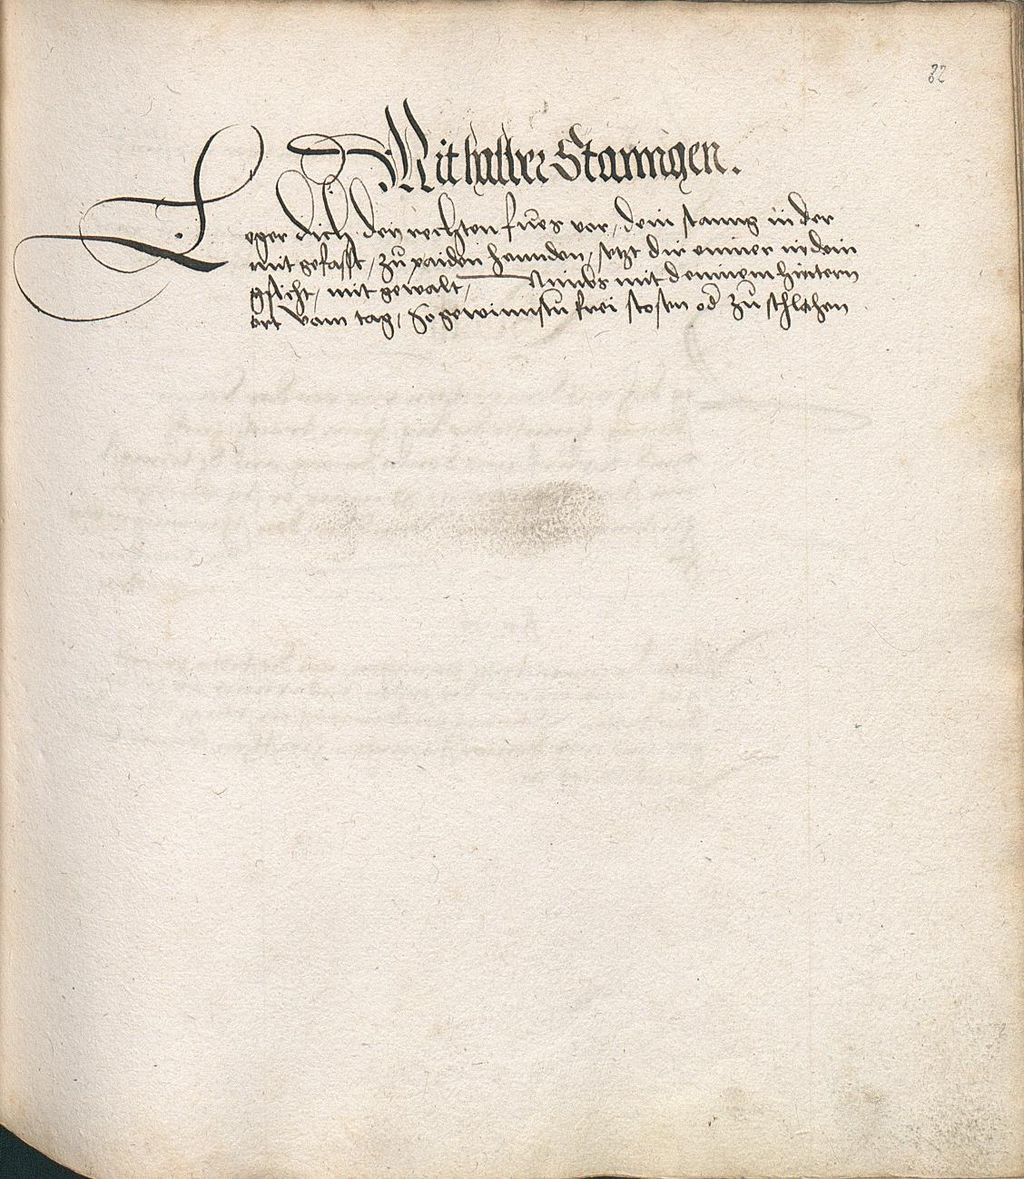 82
Mit halber Stanngen.
Leger dich den rechten fues vor, dein stanng in der
mit gefasst, zu paiden hennden, setzt dir einer in dein
gsicht, mit gewalt, Nimbs mit deinem hintern
ort vom tag, So gewinnstu frei stosen od zu schlahen